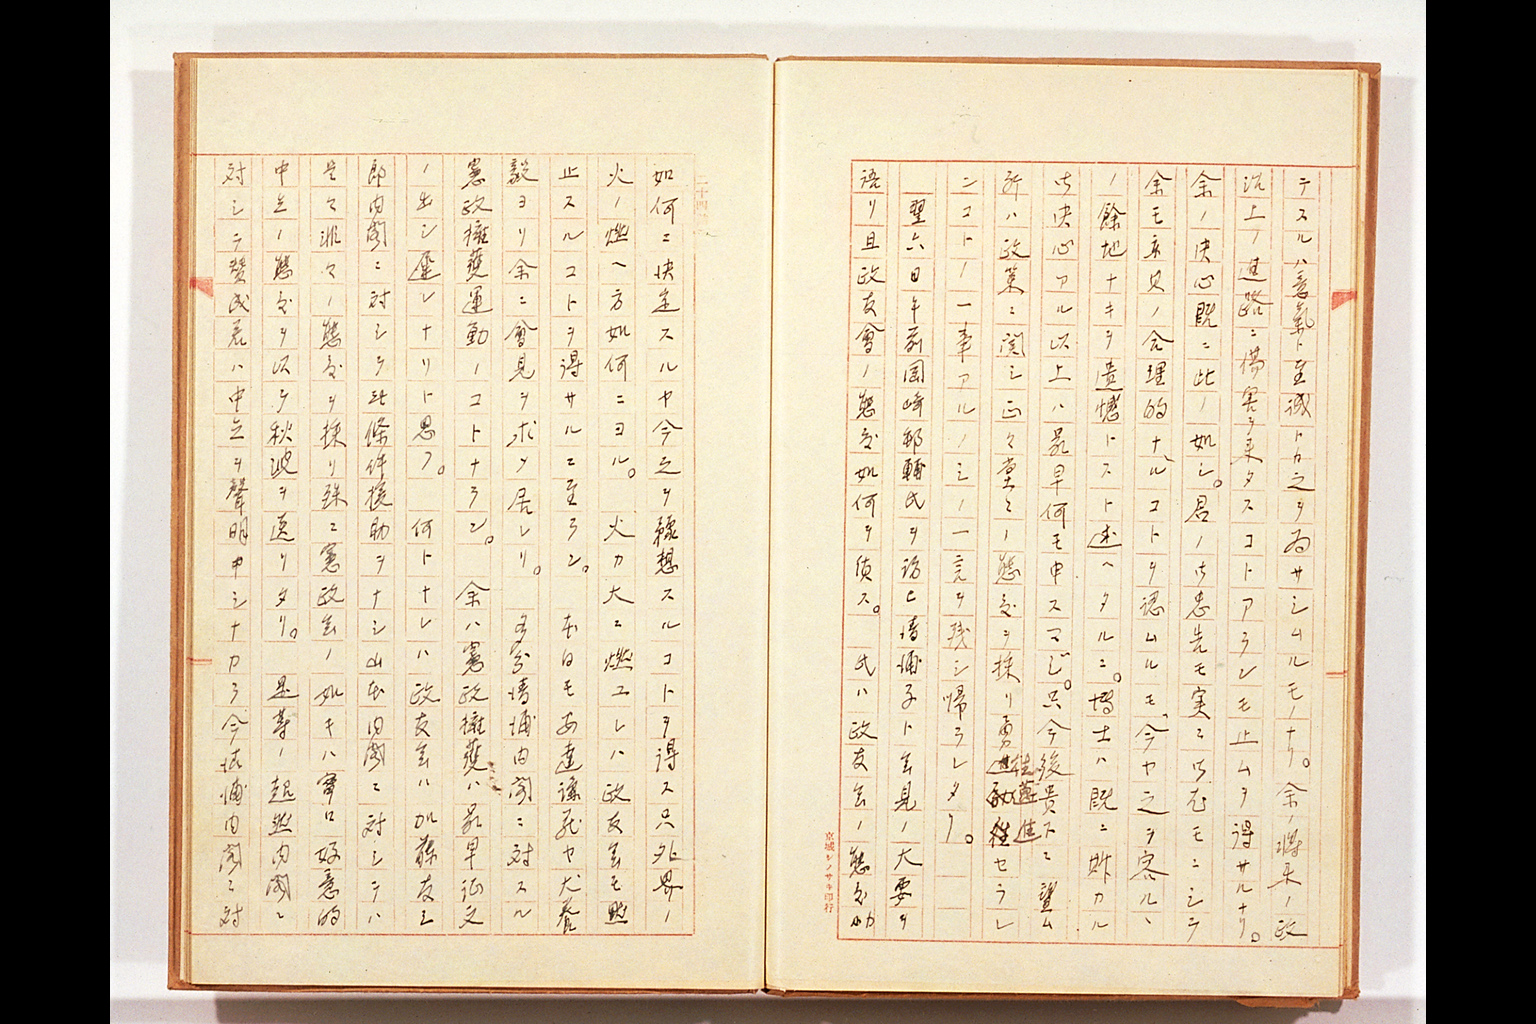 テスルハ意氣ト至誠トカ之ヲ為サシムルモノナリ。余ノ将来ノ政
治上ノ進路ニ傷害ヲ来タスコトアランモ止ムヲ得サルナリ。
余ノ決心既ニ此ノ如シ。君ノ御忠告モ実ニ御尤モニシテ
余モ亦其ノ合理的ナルコトヲ認ムルモ、今ヤ之ヲ容ルヽ
ノ餘地ナキヲ遺憾トスト述ヘタルニ。博士ハ既ニ斯カル
御決心アル以上ハ最早何モ申スマジ。只今後貴下ニ望ム
所ハ政策ニ関シ正々堂々ノ態度ヲ採リ勇往邁進セラレ
ンコトノ一事アルノミノ一言ヲ残シ帰ラレタリ。
翌六日午前国峰邨輔氏ヲ訪ヒ清浦子ト会見ノ大要ヲ
語リ且政友會ノ態度如何ヲ偵ス。 氏ハ政友会ノ態度
如何ニ決定スルヤ今之ヲ豫想スルコトヲ得ス只外界ノ
火ノ燃ヘ方如何ニヨル。 火カ大ニ燃エレハ政友会モ黙
止スルコトヲ得サルニ至ラン。 本日モ安達謙蔵ヤ犬養
毅ヨリ余ニ會見ヲ求メ居レリ。 多分清浦内閣ニ対スル
憲政擁護運動ノコトナラン。 余ハ憲政擁護ハ最早証文
ノ出シ遅レナリト思フ。 何トナレハ政友会ハ加藤友三
郎内閣ニ対シテ無條件援助ヲナシ山本内閣ニ対シテハ
是々非々ノ態度ヲ採リ殊ニ憲政会ノ如キハ寧ロ好意的
中立ノ態度ヲ以テ秋波ヲ送リタリ。 是等ノ超然内閣ニ
対シテ賛成若ハ中立ヲ聲明申シナカラ今清浦内閣ニ対
京城ヒノサキ印行